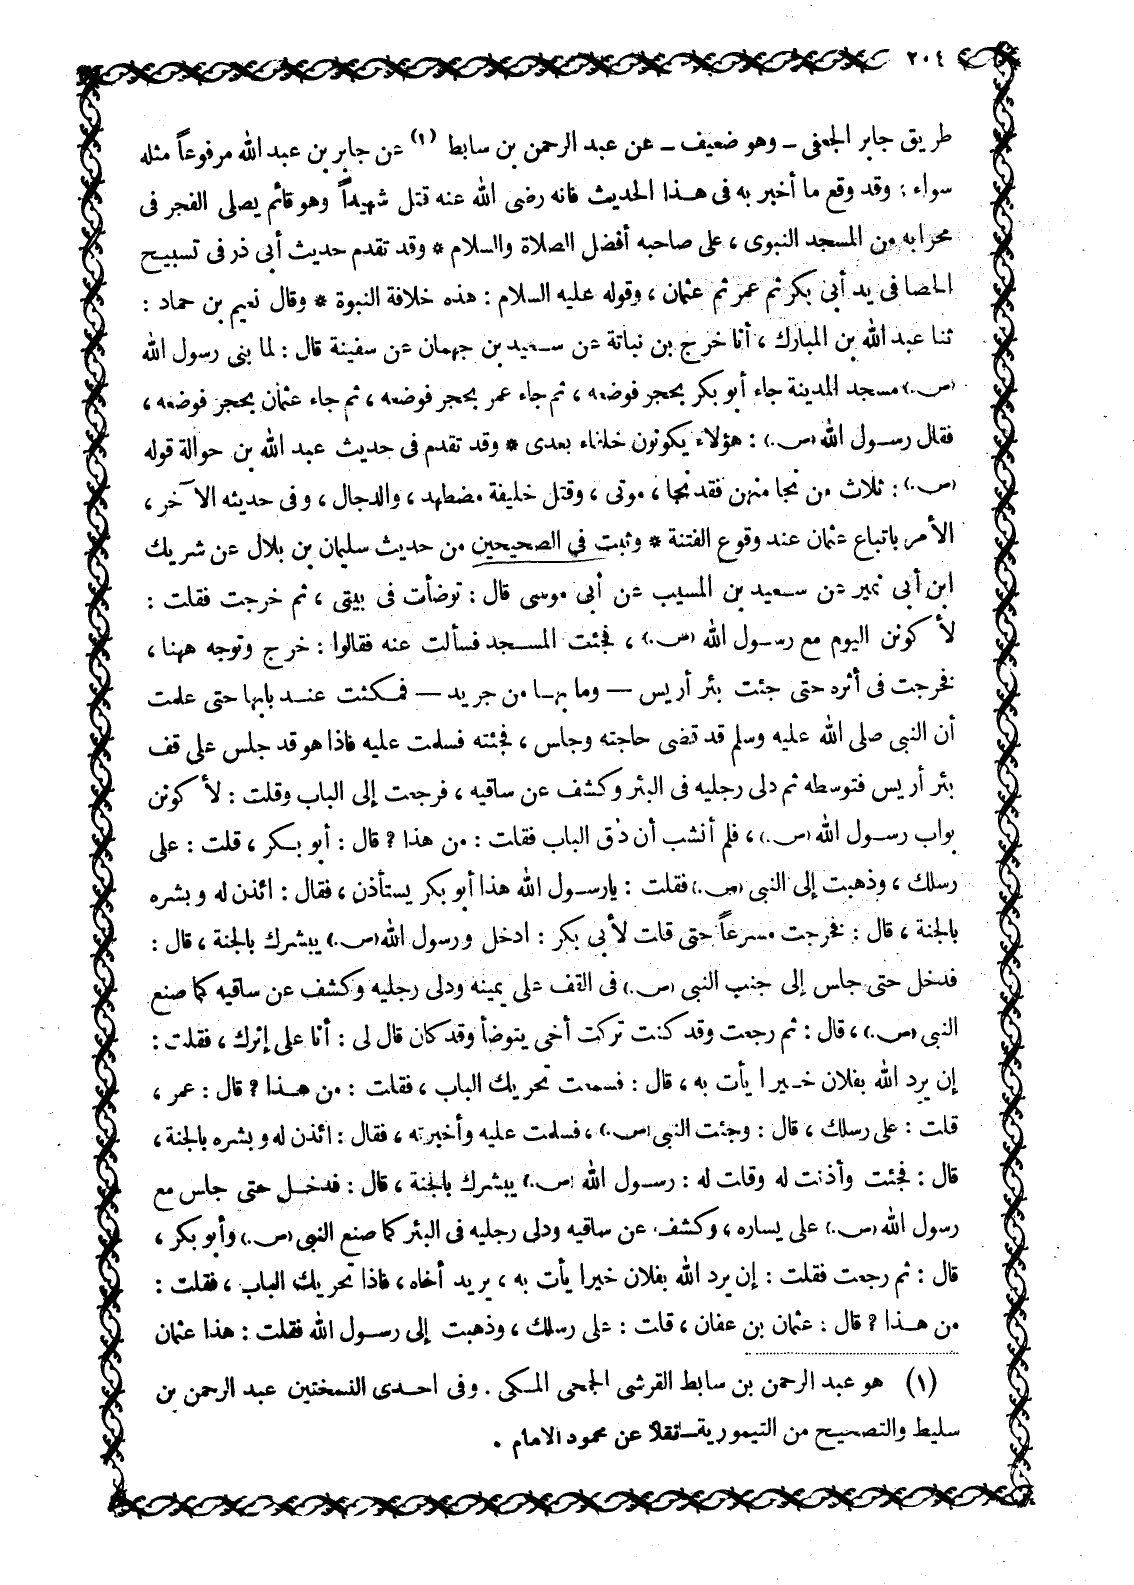 ٢٠٤
طريق جابر الجعفى ـ وهو ضعيف ـ عن عبد الرحمن بن سابط (١) عن جابر بن عبد الله مرفوعاً مثله
سواء ؛ وقد وقع ما أخبر به فى هـذا الحديث فانه رضى الله عنه قتل شهيداً وهو قائم يصلى الفجر فى
محرابه من المسجد النبوى ، على صاحبه أفضل الصلاة والسلام * وقد تقدم حديث أبى ذر فى تسبيح
الحصا فى يد أبى بكر ثم عمر ثم عثمان ، وقوله عليه السلام : هذه خلافة النبوة * وقال نعيم بن حماد :
ثنا عبد الله بن المبارك ، أنا خرج بن نباتة عن سـعيد بن جهمان عن سفينة قال : لما بنى رسول الله
(ص.) مسجد المدينة جاء أبو بكر بحجر فوضعه ، ثم جاء عمر بحجر فوضعه ، ثم جاء عثمان بحجر فوضعه ،
فقال رسـول الله (ص.) : هؤلاء يكونون خلفاء بعدى * وقد تقدم فى حديث عبد الله بن حوالة قوله
(ص.) : ثلاث من نجا منهن فقد نجا ، موتى ، وقتل خليفة مضطهد ، والدجال ، وفى حديثه الآخر ،
الأمر باتباع عثمان عند وقوع الفتنة * وثبت في الصحيحين من حديث سليمان بن بلال عن شريك
ابن أبى نمير عن سـعيد بن المسيب عن أبى موسى قال : توضأت فى بيتى ، ثم خرجت فقلت :
لأكونن اليوم مع رسـول الله (ص.) ، فجئت المسـجد فسألت عنه فقالوا : خرج وتوجه ههنا ،
فخرجت فى أثره حتى جئت بئر أريس — وما بهـا من جريد — فمكثت عنـد بابها حتى علمت
أن النبى صلى الله عليه وسلم قد قضى حاجته وجلس ، فجئته فسلمت عليه فاذا هو قد جلس على قف
بئر أريس فتوسطه ثم دلى رجليه فى البئر وكشف عن ساقيه ، فرجعت إلى الباب وقلت : لأكونن
بواب رسـول الله (ص.) ، فلم أنشب أن دق الباب فقلت : من هذا ؟ قال : أبو بكر ، قلت : على
رسلك ، وذهبت إلى النبى (ص.) فقلت : يارسـول الله هذا أبو بكر يستأذن ، فقال : ائذن له وبشره
بالجنة ، قال : فخرجت مسرعاً حتى قلت لأبى بكر : ادخل ورسول الله (ص.) يبشرك بالجنة ، قال :
فدخل حتى جلس إلى جنب النبى (ص.) فى القف على يمينه ودلى رجليه وكشف عن ساقيه كما صنع
النبى (ص.) ، قال : ثم رجعت وقد كنت تركت أخى يتوضأ وقد كان قال لى : أنا على إثرك ، فقلت :
إن يرد الله بفلان خـيرا يأت به ، قال : فسمعت تحريك الباب ، فقلت : من هـذا ؟ قال : عمر ،
قلت : على رسلك ، قال : وجئت النبى (ص.) ، فسلمت عليه وأخبرته ، فقال : ائذن له وبشره بالجنة ،
قال : فجئت وأذنت له وقلت له : رسـول الله (ص.) يبشرك بالجنة ، قال : فدخـل حتى جلس مع
رسول الله (ص.) على يساره ، وكشف عن ساقيه ودلى رجليه فى البئر كما صنع النبى (ص.) وأبو بكر ،
قال : ثم رجعت فقلت : إن يرد الله بفلان خيرا يأت به ، يريد أخاه ، فاذا تحريك الباب ، فقلت :
من هـذا ؟ قال : عثمان بن عفان ، قلت : على رسلك ، وذهبت إلى رسـول الله فقلت : هذا عثمان
(١) هو عبد الرحمن بن سابط القرشى الجمحى المكى . وفى احدى النسختين عبد الرحمن بن
سليط والتصحيح من التيمورية ـ نقلاً عن محمود الامام .